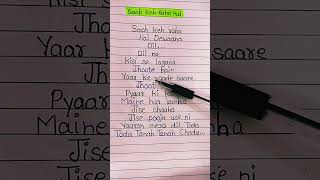 Sach Keh Raha Hai
Sach keh raha
Hai Deewana
Dil...
Dil na
Kisi se lagana
Jhoote hain
Yaar ke vaade saare
Jhoot
Pyaar ki
Maine har lamha
Jise chaaha
Jise pooja use ni
Yaaron mera dil Toda
Toda Tanah Tanah Choda...
Maine